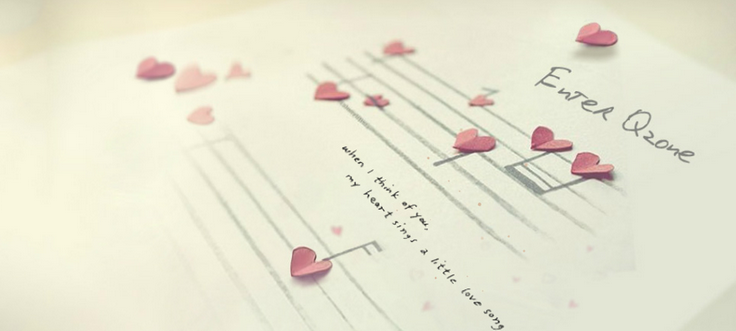 Enter Qzone
when I think of you,
my heart sings a little love song